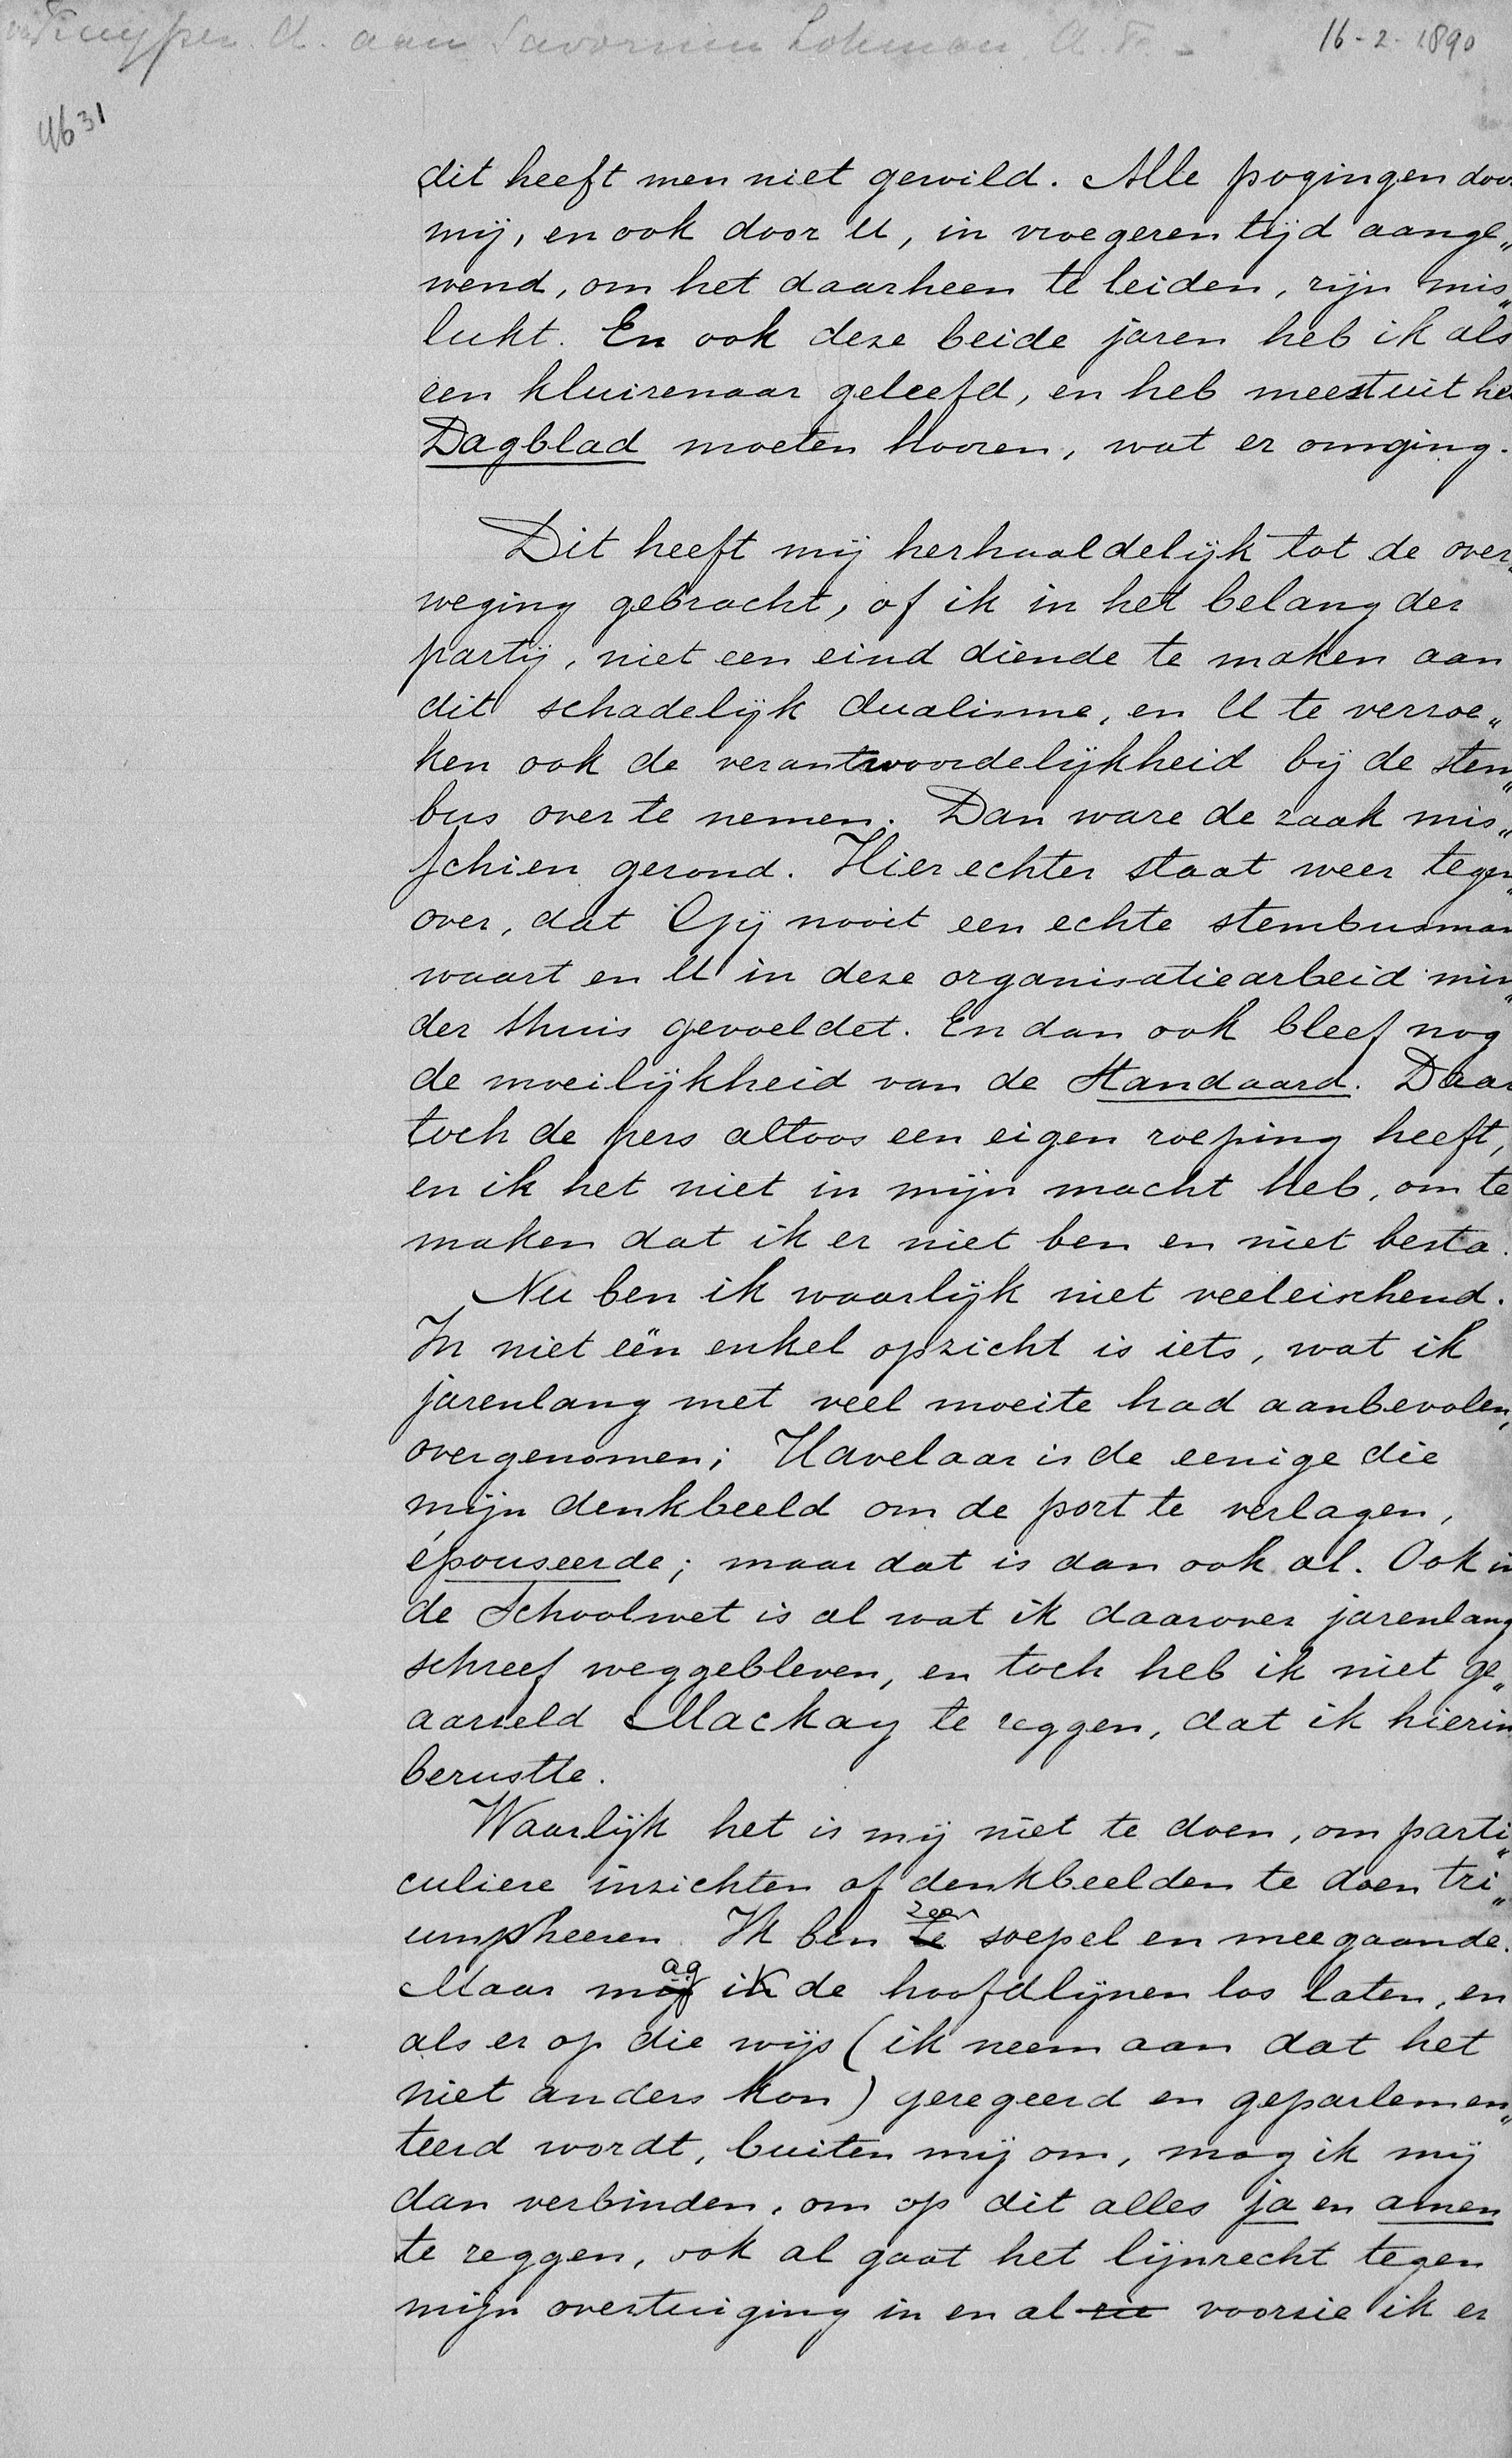 Kuyper A. aan Savornin Lohman A.F. - 16-2-1890
4631
dit heeft men niet gewild. Alle pogingen doo
mij, en ook door U, in vroegeren tijd aange„
wend, om het daarheen te leiden, zijn mis„
lukt. En ook deze beide jaren heb ik als
een kluizenaar geleefd, en heb meest uit he
Dagblad moeten hooren, wat er omging.
Dit heeft mij herhaaldelijk tot de over„
weging gebracht, of ik in het belang der
partij, niet een eind diende te maken aan
dit schadelijk dualisme, en U te verzoe„
ken ook de verantwoordelijkheid bij de stem„
bus over te nemen. Dan ware de zaak mis„
schien gezond. Hier echter staat weer tegen„
over, dat Gij nooit een echte stembusman
waart en U in deze organisatiearbeid min„
der thuis gevoeldet. En dan ook bleef nog
de moeilijkheid van de Standaard. Daar
toch de pers altoos een eigen roeping heeft,
en ik het niet in mijn macht heb, om te
maken dat ik er niet ben en niet besta.
Nu ben ik waarlijk niet veeleischend.
In niet eën enkel opzicht is iets, wat ik
jarenlang met veel moeite had aanbevolen,
overgenomen; Havelaar is de eenige die
mijn denkbeeld om de port te verlagen,
épouseerde; maar dat is dan ook al. Ook in
de Schoolwet is al wat ik daarover jarenlang
schreef weggebleven, en toch heb ik niet ge„
aarzeld Mackay te zeggen, dat ik hierin
berustte.
Waarlijk het is mij niet te doen, om parti„
culiere inzichten of denkbeelden te doen tri„
umpheeren. Ik ben te zeer soepel en meegaande.
Maar mag ik de hoofdlijnen los laten, en
als er op die wijs (ik neem aan dat het
niet anders kon) geregeerd en geparlemen„
teerd wordt, buiten mij om, mag ik mij
dan verbinden, om op dit alles ja en amen
te zeggen, ook al gaat het lijnrecht tegen
mijn overtuiging in en al voorzie ik er